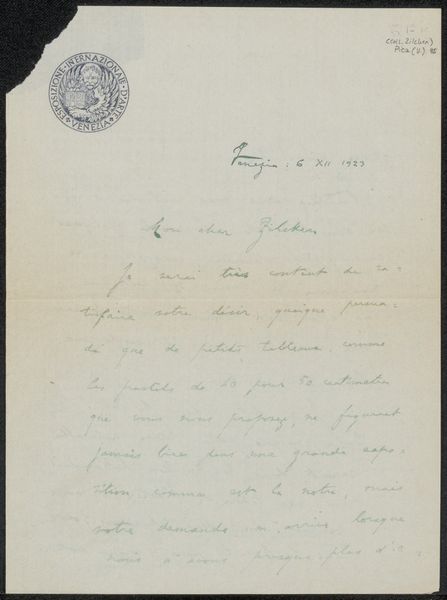 (coll. Zilcken)
Pica (V.)
ESPOSIZIONE · INTERNAZIONALE · D'ARTE
VENEZIA
Venezia : 6 XII 1923
Mon cher Zilcken
Je serai très content de sa-
tisfaire votre désir, quoique persua-
dé que de petits tableaux, comme
les pastels de 40 pour 50 centimetres
que vous nous proposez, ne figurent
jamais bien dans une grande expo-
sition comme est la notre, mais
votre demande arrive lorsque
nous n'avons presque plus